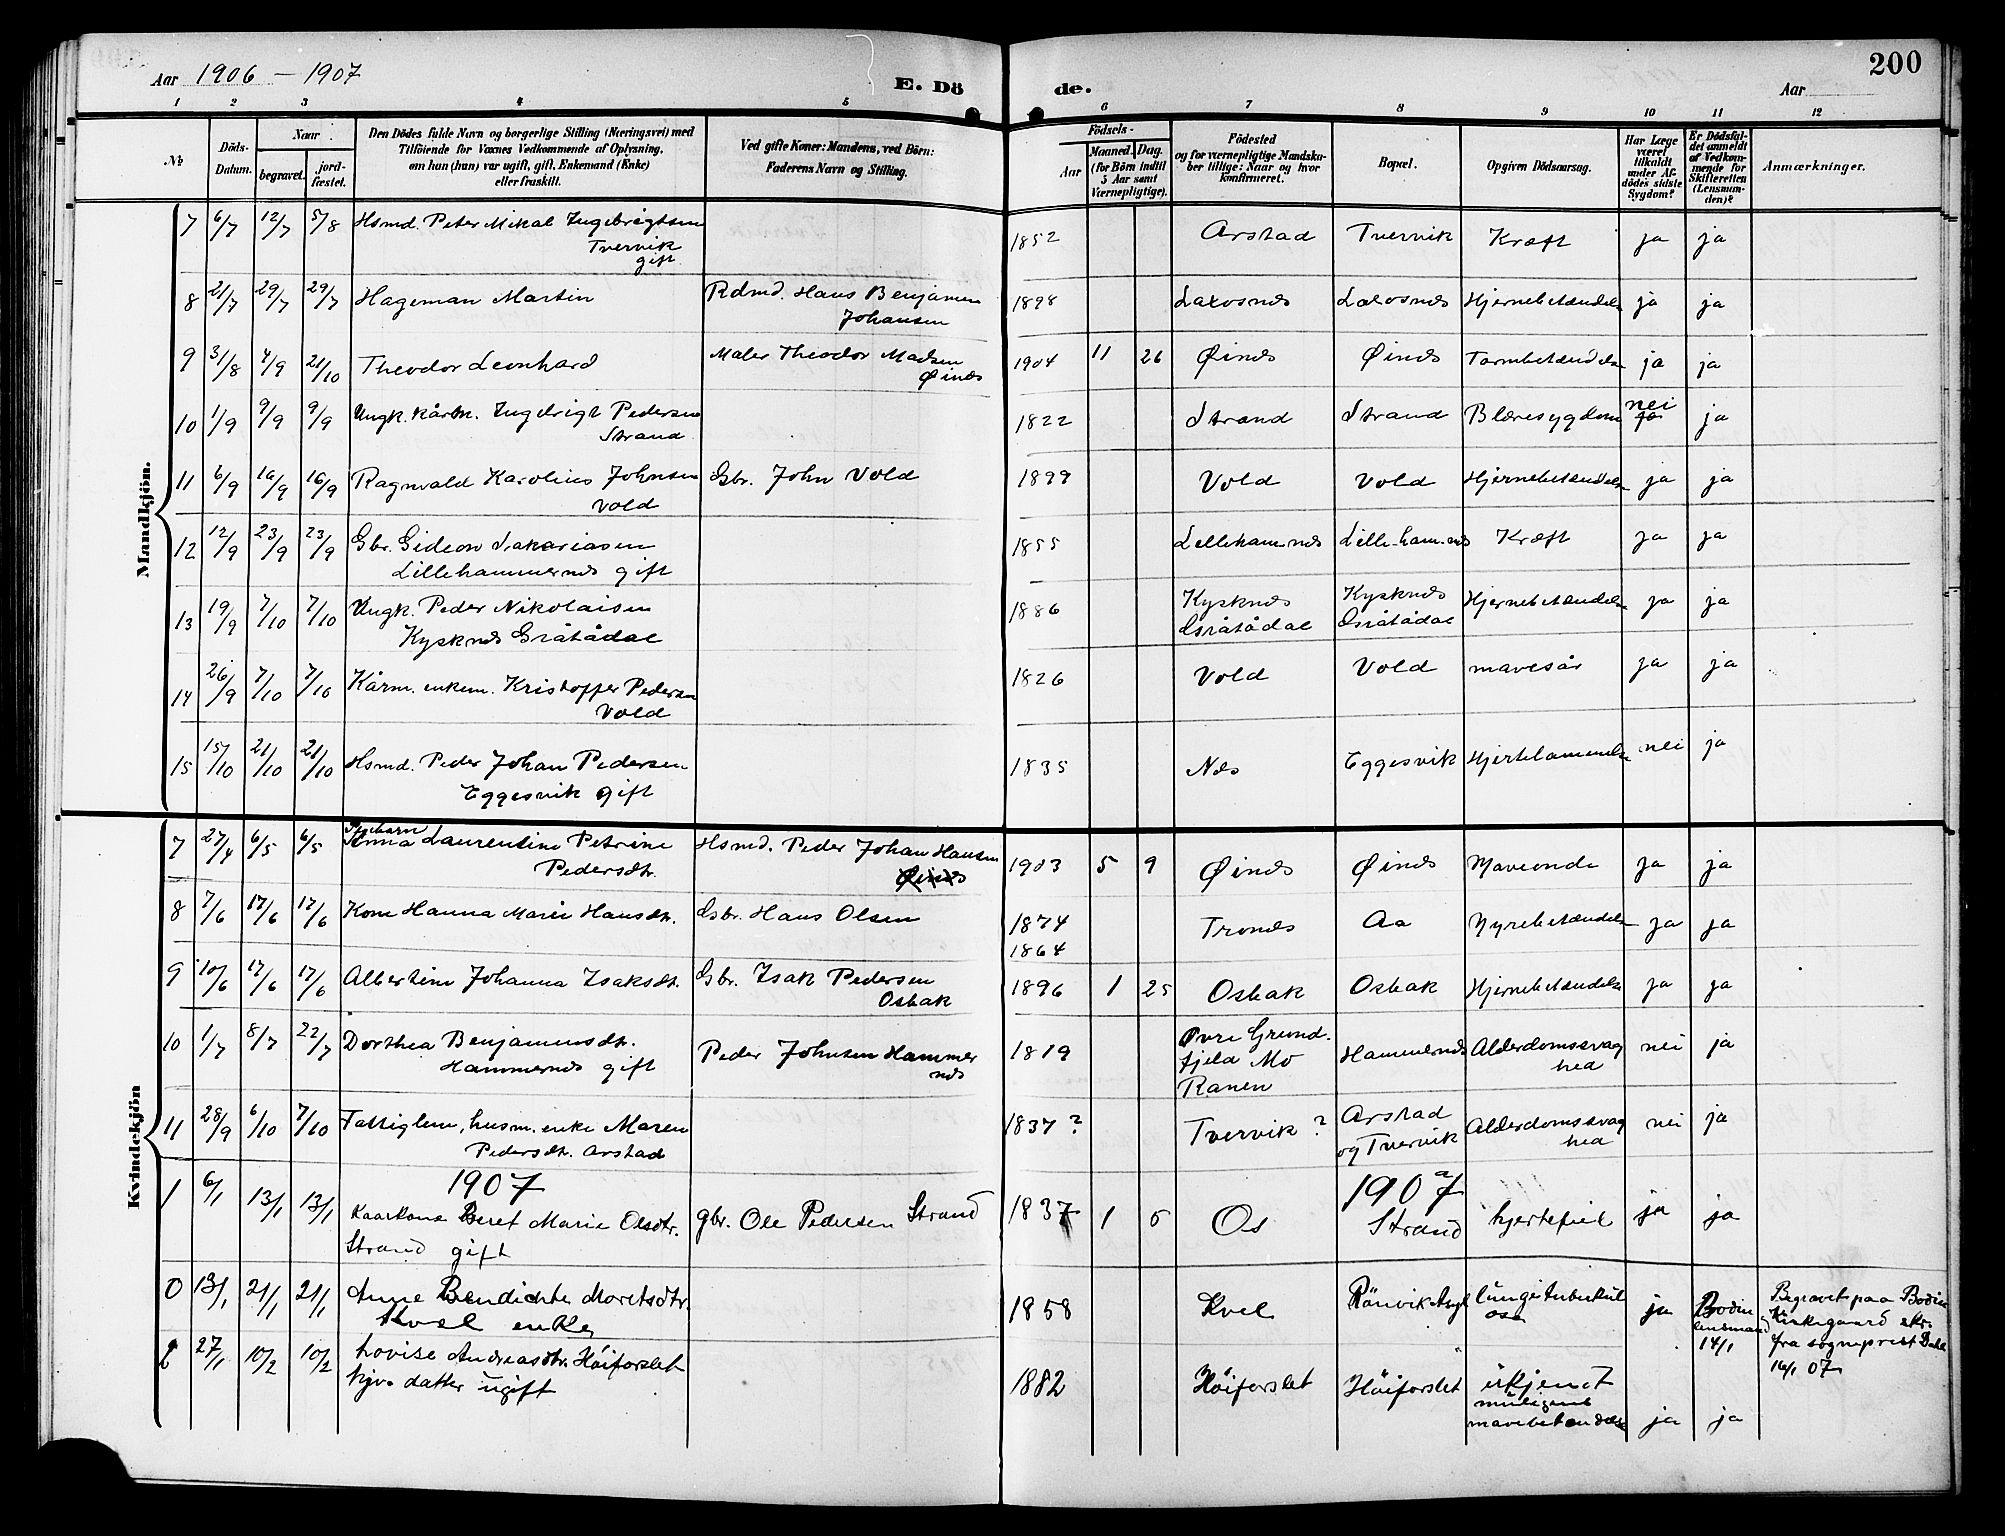 200
Aar 1906 – 1907
E. Dö
de.
Aar
1 2 3 4 5 6 7 8 9 10 11 12
No
Döds-Datum.
Naar
begravet.
jord-fæstet.
Den Dödes fulde Navn og borgerlige Stilling (Næringsvei) med
Tilföiende for Voxnes Vedkommende af Oplysning,
om han (hun) var ugift, gift, Enkemand (Enke)
eller fraskilt.
Ved gifte Koner: Mandens, ved Börn:
Faderens Navn og Stilling.
Födsels-
Aar
Maaned. Dag.
(for Börn indtil
5 Aar samt
Værnepligtige).
Födested
og for værnepligtige Mandska-
ber tillige: Naar og hvor
konfirmeret.
Bopæl.
Opgiven Dödsaarsag.
Har Læge
været
tilkaldt
under Af-
dödes sidste
Sygdom?
Er Dödsfal-
det anmeldt
af Vedkom-
mende for
Skifteretten
(Lensman-
den)?
Anmærkninger.
Mandkjön.
7 6/7 12/7 5/8 Hsmd. Peter Mikal Ingebrigtsen
Tvervik
gift
1852 Arstad Tvervik Kræft ja ja
8 21/7 29/7 29/7 Hageman Martin Rdmd. Hans Benjamin
Johansen
1898 Laxosnæs Laxosnæs Hjernebetændelse ja ja
9 31/8 4/9 21/10 Theodor Leonhard Maler Theodor Madsen
Øinæs
1904 11 26 Øinæs Øinæs Tarmbetændelse ja ja
10 1/9 9/9 9/9 Ungk. kårm. Ingebrigt Pedersen
Strand
1822 Strand Strand Blæresygdom nei ja ja
11 6/9 16/9 16/9 Ragnvald Karolius Johnsen
Vold
Gbr. John Vold
1899 Vold Vold Hjernebetændelse ja ja
12 12/9 23/9 23/9 Gbr. Gideon Sakariasen
Lillehammernæs gift
1855 Lilleham.næs Lille-ham.næs Kræft ja ja
13 19/9 7/10 7/10 Ungk. Peder Nikolaisen
Kysknæs Gråtådal
1886 Kysknæs
Gråtådal
Kysknæs
Gråtådal
Hjernebetændelse ja ja
14 26/9 7/10 7/10 Kårm. enkem. Kristoffer Pedersen
Vold
1826 Vold Vold mavesår ja ja
15 15/10 21/10 21/10 Hsmd. Peder Johan Pedersen
Eggesvik gift
1835 Næs Eggesvik Hjertelammelse nei ja
Kvindekjön
7 27/4 6/5 6/5 Anna Laurentine Petrine
Pedersdtr.
Hsmd. Peder Johan Hansen
Øinæs
1903 5 9 Øinæs Øinæs Maveonde ja ja
8 7/6 17/6 17/6 Kone Hanna Marie Hansdtr. Gbr. Hans Olsen
1874
1864
Tronæs Aa Nyrebetændelse ja ja
9 10/6 17/6 17/6 Albertine Johanna Isaksdt. Gbr. Isak Pedersen
Osbak
1896 1 25 Osbak Osbak Hjernebetændelse ja ja
10 1/7 8/7 22/7 Dorthea Benjaminsdtr.
Hammernæs gift
Peder Johnsen Hammer
næs
1819 Øvre Grund-
fjeld Mo
Ranen
Hammernæs Alderdomssvag
hed
nei ja
11 28/9 6/10 7/10 Fattiglem, husm. enke Maren
Pedersdtr. Arstad
1837? Tvervik? Arstad
og Tvervik
Alderdomssvag
hed
nei ja
1907
1907
1 6/1 13/1 13/1 Kaarkone Beret Marie Olsdtr.
Strand gift
gbr. Ole Pedersen Strand
1837 1 6 Os Strand hjertefeil ja ja
0 13/1 21/1 21/1 Anne Bendichte Moritsdtr.
Kvel enke
1858 Kvel Rönvik Asyl lungetuberkul
ose
ja Bodin
lensmand
14/1
Begravet paa Bodin
Kirkegaard skr.
fra sogneprest Dahl
16/1 07
2 27/1 10/2 10/2 Lovise Andreasdtr. Höiforslet
tyv. datter ugift
1882 Höiforslet Höiforslet ukjendt
muligens
mavebetændelse
ja ja